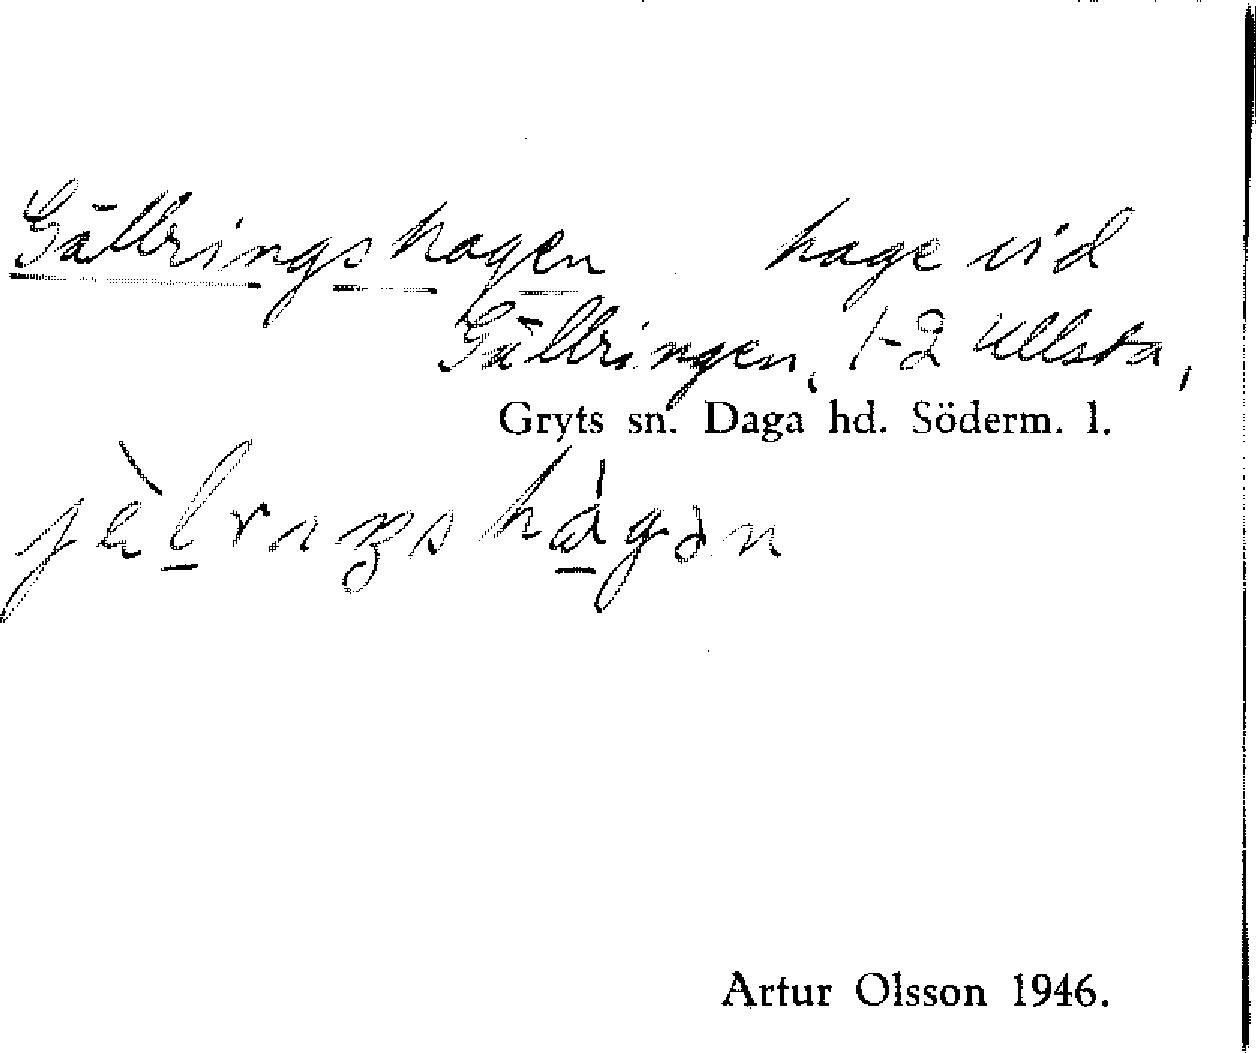 Gällringshagen hage vid
Gällringen, 1-2 Ullsta,
Gryts sn. Daga hd. Söderm. l.
Artur Olsson 1946.